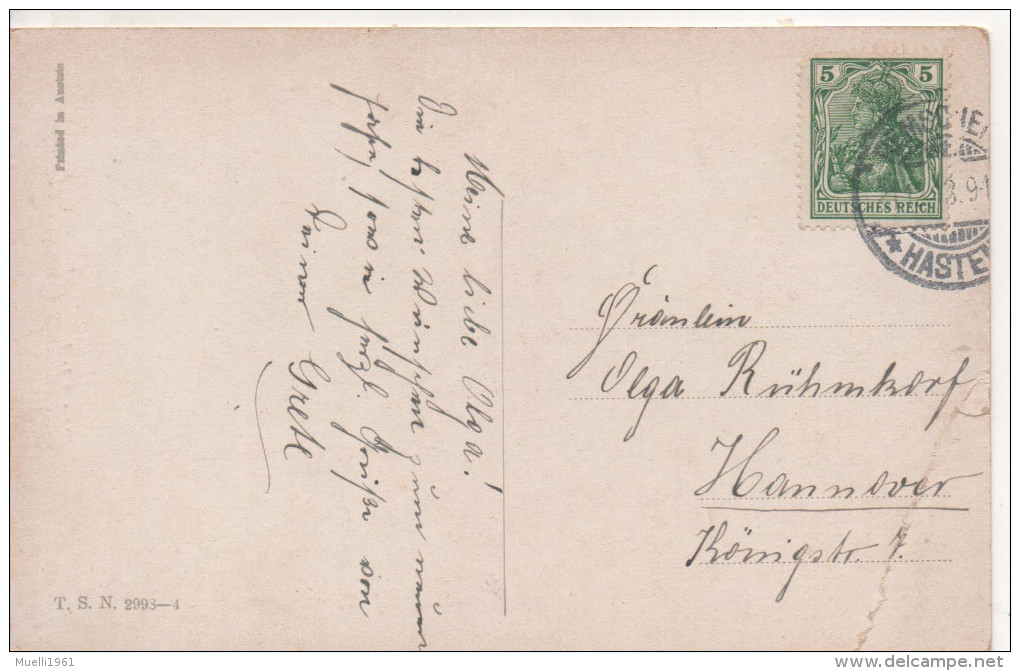 Printed in Austria
Meine liebe Olga!
Die besten Wünsche zum neuen
Jahre, sowie herzl. Grüße von
Deiner Grete
5 5
DEUTSCHES REICH
HASTE
Fräulein
Olga Rühmkorf
Hannover
Königstr. 7.
T. S. N. 2993—4
Muelli1961
delcampe.net